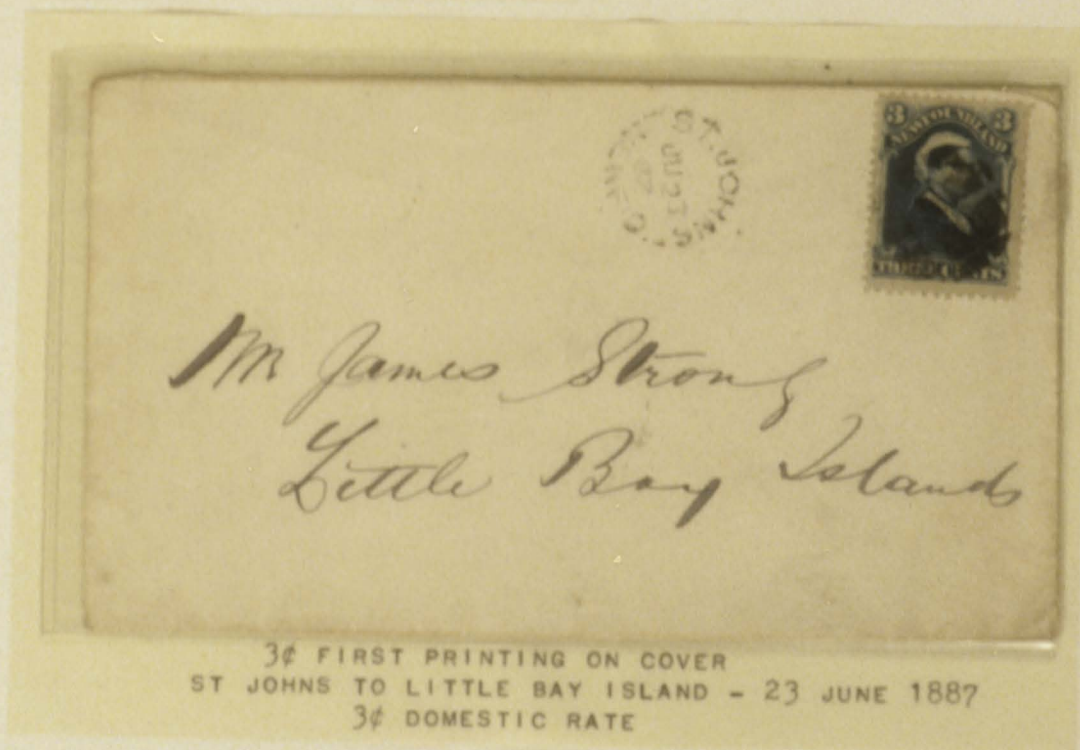 ST. JOHN'S
JU 23
87
3 3
NEWFOUNDLAND
THREE CENTS
Mr James Strong
Little Bay Islands
3¢ FIRST PRINTING ON COVER
ST JOHNS TO LITTLE BAY ISLAND – 23 JUNE 1887
3¢ DOMESTIC RATE